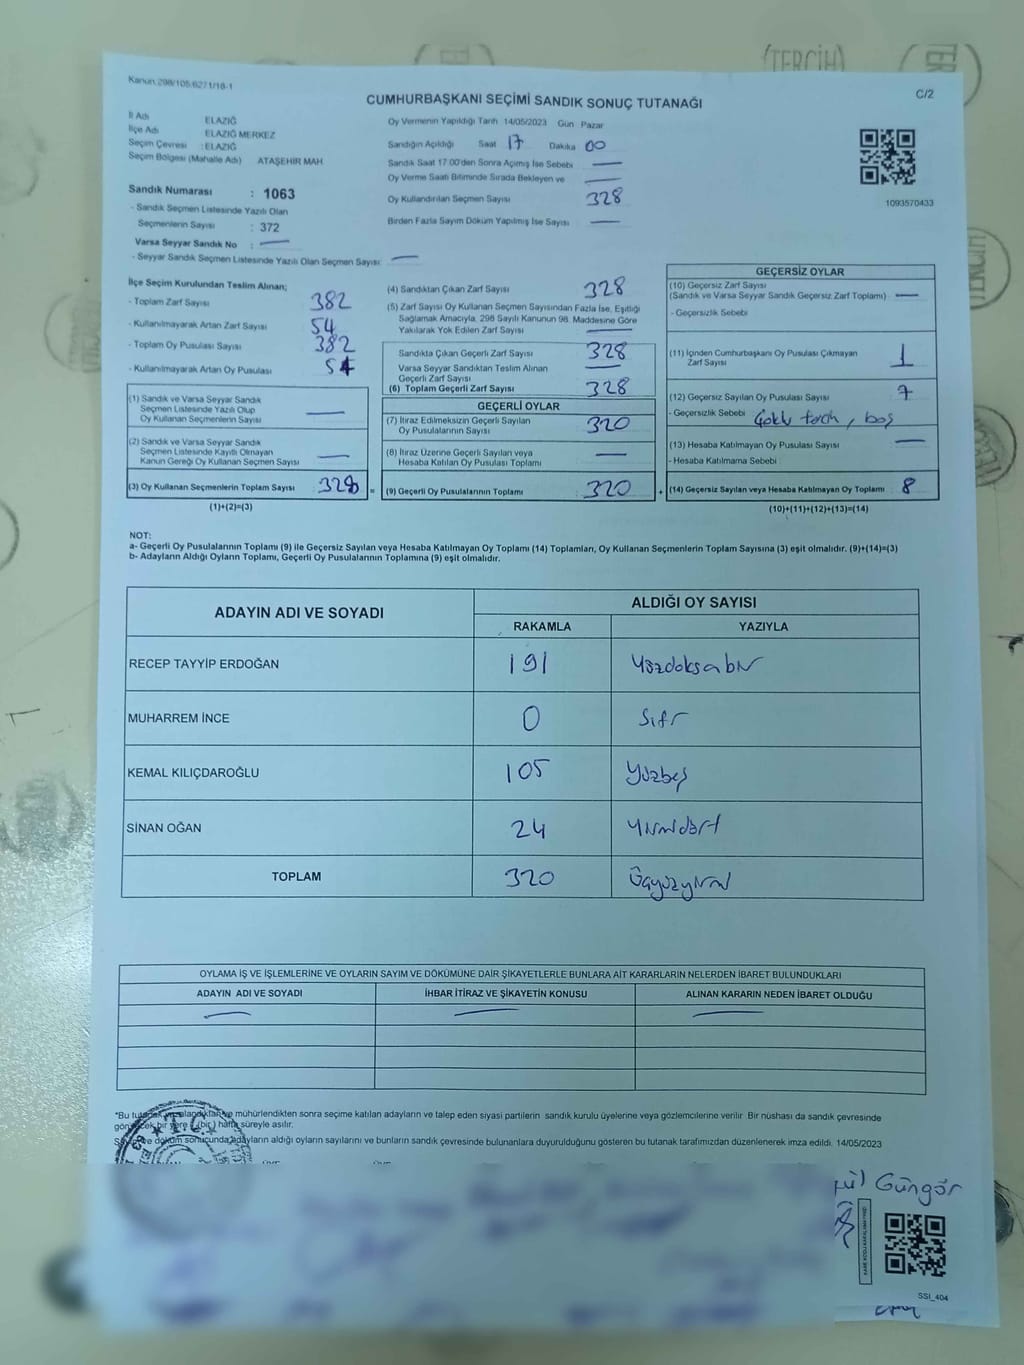 Kanun:298/105/6271/18-1
C/2
CUMHURBAŞKANI SEÇİMİ SANDIK SONUÇ TUTANAĞI
İl Adı ELAZIĞ
İlçe Adı ELAZIĞ MERKEZ
Seçim Çevresi : ELAZIĞ
Seçim Bölgesi (Mahalle Adı) ATAŞEHİR MAH
Sandık Numarası : 1063
- Sandık Seçmen Listesinde Yazılı Olan
Seçmenlerin Sayısı : 372
Varsa Seyyar Sandık No : —
- Seyyar Sandık Seçmen Listesinde Yazılı Olan Seçmen Sayısı: —
Oy Vermenin Yapıldığı Tarih 14/05/2023 Gün Pazar
Sandığın Açıldığı Saat 17 Dakika 00
Sandık Saat 17.00'den Sonra Açılmış İse Sebebi —
Oy Verme Saati Bitiminde Sırada Bekleyen ve —
Oy Kullandırılan Seçmen Sayısı 328
Birden Fazla Sayım Döküm Yapılmış İse Sayısı —
1093570433
İlçe Seçim Kurulundan Teslim Alınan;
- Toplam Zarf Sayısı 382
- Kullanılmayarak Artan Zarf Sayısı 54
- Toplam Oy Pusulası Sayısı 382
- Kullanılmayarak Artan Oy Pusulası 54
(1) Sandık ve Varsa Seyyar Sandık
Seçmen Listesinde Yazılı Olup
Oy Kullanan Seçmenlerin Sayısı —
(2) Sandık ve Varsa Seyyar Sandık
Seçmen Listesinde Kayıtlı Olmayan
Kanun Gereği Oy Kullanan Seçmen Sayısı —
(3) Oy Kullanan Seçmenlerin Toplam Sayısı 328 =
(1)+(2)=(3)
(4) Sandıktan Çıkan Zarf Sayısı 328
(5) Zarf Sayısı Oy Kullanan Seçmen Sayısından Fazla İse, Eşitliği
Sağlamak Amacıyla, 298 Sayılı Kanunun 98. Maddesine Göre
Yakılarak Yok Edilen Zarf Sayısı —
Sandıkta Çıkan Geçerli Zarf Sayısı 328
Varsa Seyyar Sandıktan Teslim Alınan
Geçerli Zarf Sayısı —
(6) Toplam Geçerli Zarf Sayısı 328
GEÇERLİ OYLAR
(7) İtiraz Edilmeksizin Geçerli Sayılan
Oy Pusulalarının Sayısı 320
(8) İtiraz Üzerine Geçerli Sayılan veya
Hesaba Katılan Oy Pusulası Toplamı —
(9) Geçerli Oy Pusulalarının Toplamı 320 +
GEÇERSİZ OYLAR
(10) Geçersiz Zarf Sayısı
(Sandık ve Varsa Seyyar Sandık Geçersiz Zarf Toplamı) —
- Geçersizlik Sebebi
(11) İçinden Cumhurbaşkanı Oy Pusulası Çıkmayan
Zarf Sayısı 1
(12) Geçersiz Sayılan Oy Pusulası Sayısı 7
- Geçersizlik Sebebi Çoklu tercih, boş
(13) Hesaba Katılmayan Oy Pusulası Sayısı —
- Hesaba Katılmama Sebebi
(14) Geçersiz Sayılan veya Hesaba Katılmayan Oy Toplamı 8
(10)+(11)+(12)+(13)=(14)
NOT:
a- Geçerli Oy Pusulalarının Toplamı (9) ile Geçersiz Sayılan veya Hesaba Katılmayan Oy Toplamı (14) Toplamları, Oy Kullanan Seçmenlerin Toplam Sayısına (3) eşit olmalıdır. (9)+(14)=(3)
b- Adayların Aldığı Oyların Toplamı, Geçerli Oy Pusulalarının Toplamına (9) eşit olmalıdır.
ADAYIN ADI VE SOYADI ALDIĞI OY SAYISI
RAKAMLA YAZIYLA
RECEP TAYYİP ERDOĞAN 191 Yüzdoksabir
MUHARREM İNCE 0 Sıfır
KEMAL KILIÇDAROĞLU 105 Yüzbeş
SİNAN OĞAN 24 Yirmidört
TOPLAM 320 Üçyüzyirmi
OYLAMA İŞ VE İŞLEMLERİNE VE OYLARIN SAYIM VE DÖKÜMÜNE DAİR ŞİKAYETLERLE BUNLARA AİT KARARLARIN NELERDEN İBARET BULUNDUKLARI
ADAYIN ADI VE SOYADI İHBAR İTİRAZ VE ŞİKAYETİN KONUSU ALINAN KARARIN NEDEN İBARET OLDUĞU
— — —
*Bu ve mühürlendikten sonra seçime katılan adayların ve talep eden siyasi partilerin sandık kurulu üyelerine veya gözlemcilerine verilir. Bir nüshası da sandık çevresinde
bir yere 1 (bir) hafta süreyle asılır.
ve döküm sonucunda adayların aldığı oyların sayılarını ve bunların sandık çevresinde bulunanlara duyurulduğunu gösteren bu tutanak tarafımızdan düzenlenerek imza edildi. 14/05/2023
T.C.
Güngör
SSI_404